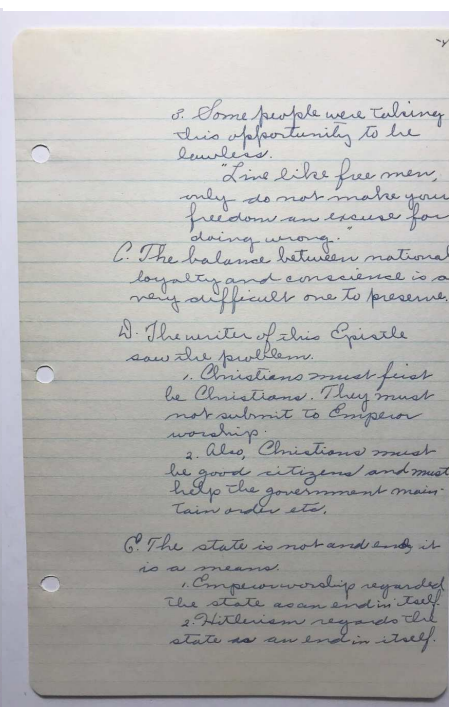 3. Some people were taking
this opportunity to be
lawless.
"Live like free men,
only do not make your
freedom an excuse for
doing wrong."
C. The balance between national
loyalty and conscience is a
very difficult one to preserve.
D. The writer of this Epistle
saw the problem.
1. Christians must first
be Christians. They must
not submit to Emperor
worship.
2. Also, Christians must
be good citizens and must
help the government main-
tain order etc.
E. The state is not and end, it
is a means.
1. Emperor worship regarded
the state as an end in itself.
2. Hitlerism regards the
state as an end in itself.